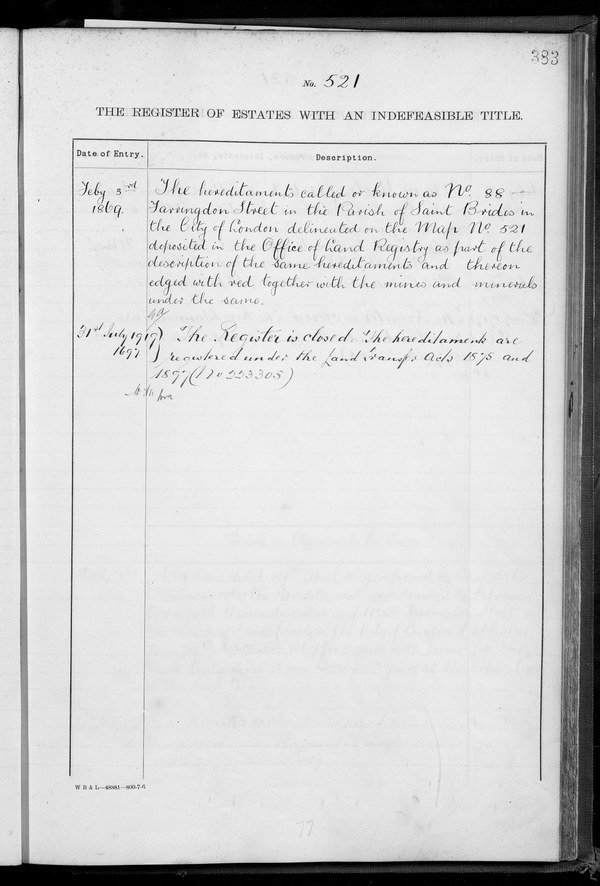 383
No. 521
THE REGISTER OF ESTATES WITH AN INDEFEASIBLE TITLE.
Date of Entry.
Description.
Feby 3rd
1869.
The hereditaments called or known as No. 88
Farringdon Street in the Parish of Saint Brides in
the City of London delineated on the Map No. 521
deposited in the Office of Land Registry as part of the
description of the same hereditaments and thereon
edged with red together with the mines and minerals
under the same.
31st July 1919
1697
The Register is closed. The hereditaments are
registered under the Land Transfer Acts 1875 and
1897 (No 223305)
W B & L—48881—800-7-6
77